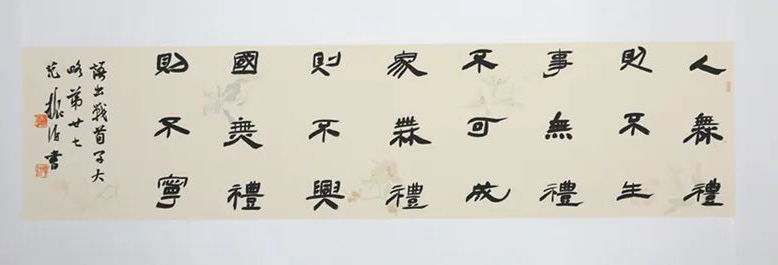 人無禮
則不生
事無禮
不可成
家無禮
則不興
國無禮
則不寧
語出戰荀子大
略第廿七
范振海書